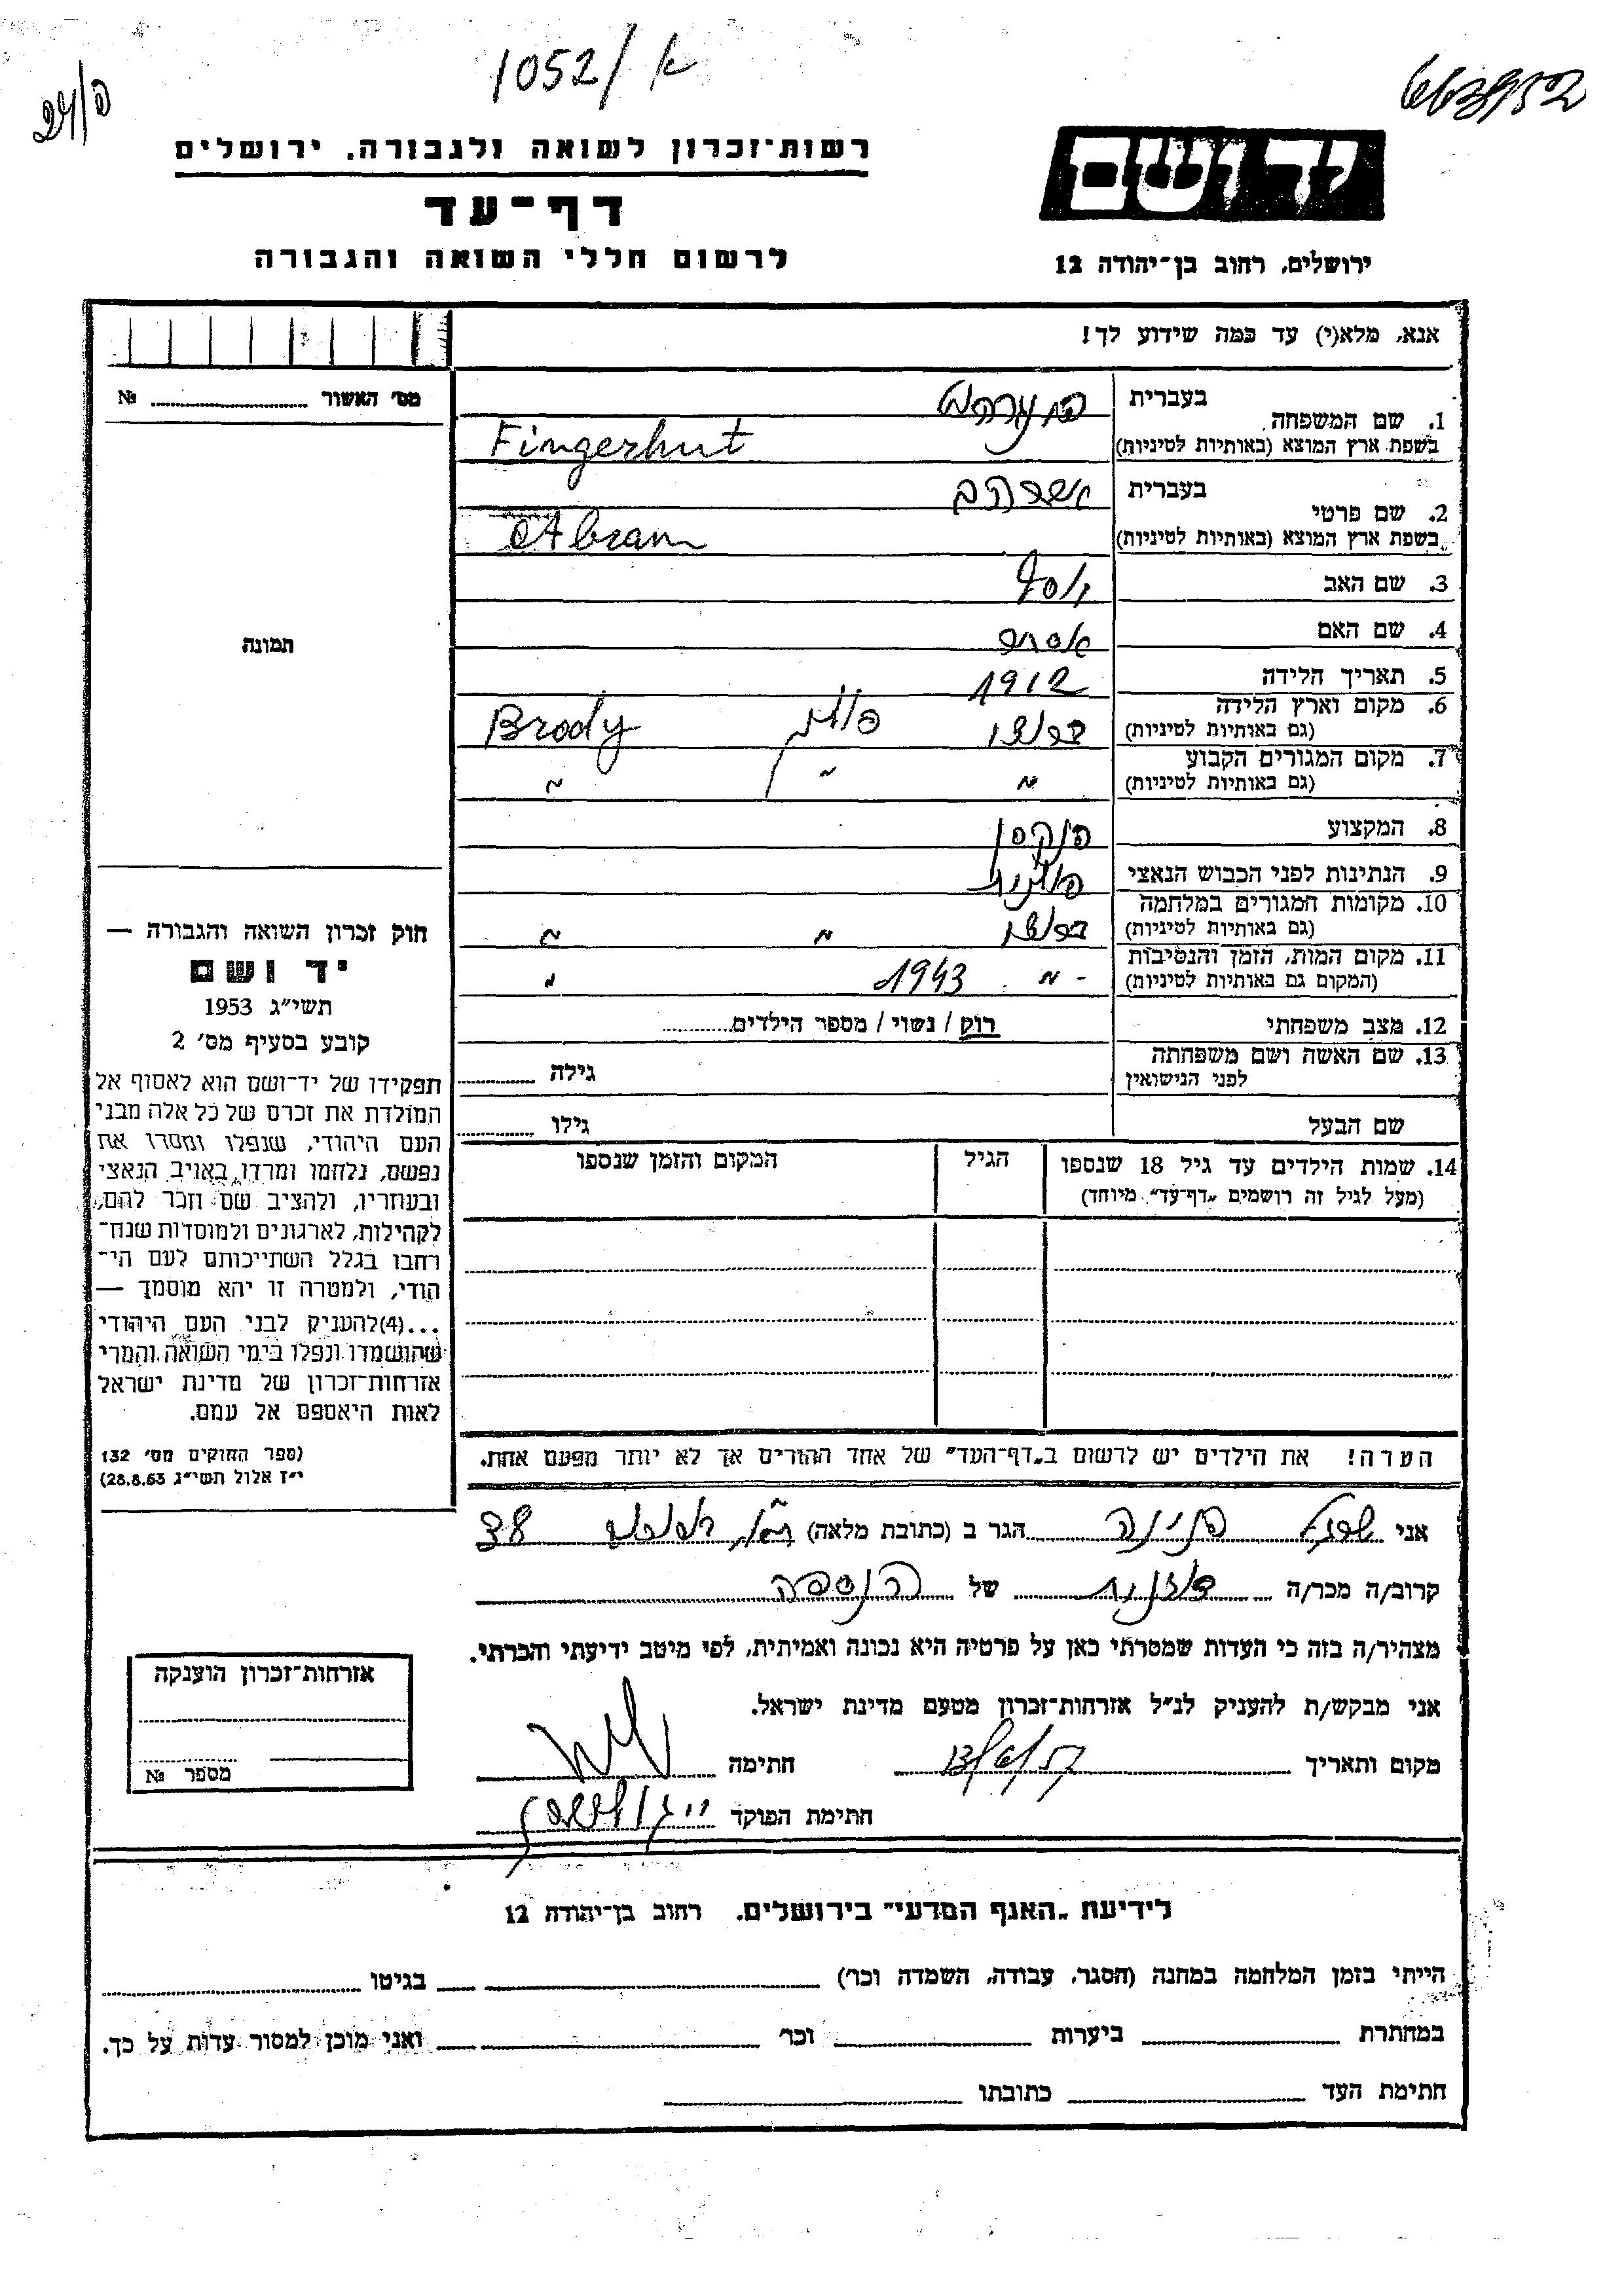 1052/א
רשות-זכרון לשואה ולגבורה. ירושלים
דף-עד
לרשום חללי השואה והגבורה
יד ושם
ירושלים, רחוב בן-יהודה 12
אנא, מלא(י) עד כמה שידוע לך!
מס׳ האשור № 
1. שם המשפחה
בעברית
בשפת ארץ המוצא (באותיות לטיניות) Fingerhut
2. שם פרטי
בעברית אברהם
בשפת ארץ המוצא (באותיות לטיניות) Abram
3. שם האב יוסף
4. שם האם
5. תאריך הלידה 1912
6. מקום וארץ הלידה
(גם באותיות לטיניות) ברודי פולין Brody
7. מקום המגורים הקבוע
(גם באותיות לטיניות) " " "
8. המקצוע
9. הנתינות לפני הכבוש הנאצי פולנית
10. מקומות המגורים במלחמה
(גם באותיות לטיניות) ברודי " "
11. מקום המות, הזמן והנסיבות
(המקום גם באותיות לטיניות) - " 1943 "
12. מצב משפחתי רוק / נשוי / מספר הילדים
13. שם האשה ושם משפחתה
לפני הנישואין גילה
שם הבעל גילו
14. שמות הילדים עד גיל 18 שנספו הגיל המקום והזמן שנספו
(מעל לגיל זה רושמים „דף-עד״ מיוחד)
הערה! את הילדים יש לרשום ב„דף-העד״ של אחד ההורים אך לא יותר מפעם אחת.
תמונה
חוק זכרון השואה והגבורה —
יד ושם
תשי״ג 1953
קובע בסעיף מס׳ 2
תפקידו של יד-ושם הוא לאסוף אל
המולדת את זכרם של כל אלה מבני
העם היהודי, שנפלו ומסרו את
נפשם, נלחמו ומרדו באויב הנאצי
ובעוזריו, ולהציב שם וזכר להם,
לקהילות, לארגונים ולמוסדות שנח-
רבו בגלל השתייכותם לעם הי-
הודי, ולמטרה זו יהא מוסמך —
...(4)להעניק לבני העם היהודי
שהושמדו ונפלו בימי השואה והמרי
אזרחות-זכרון של מדינת ישראל
לאות היאספם אל עמם.
(ספר החוקים מס׳ 132
י״ז אלול תשי״ג 28.8.53)
אני פנינה הגר ב (כתובת מלאה)
קרוב/ה מכר/ה של הנספה
מצהיר/ה בזה כי העדות שמסרתי כאן על פרטיה היא נכונה ואמיתית, לפי מיטב ידיעתי והכרתי.
אני מבקש/ת להעניק לנ״ל אזרחות-זכרון מטעם מדינת ישראל.
מקום ותאריך חתימה
חתימת הפוקד
אזרחות-זכרון הוענקה
מספר №
לידיעת „האגף המדעי״ בירושלים. רחוב בן-יהודה 12
הייתי בזמן המלחמה במחנה (הסגר, עבודה, השמדה וכו׳) בגיטו
במחתרת ביערות וכו׳ ואני מוכן למסור עדות על כך.
חתימת העד כתובתו